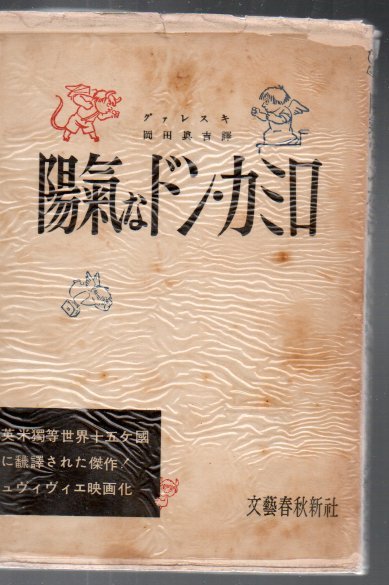 グァレスキ
岡田眞吉譯
陽氣なドン・カミロ
英米獨等世界十五ケ國
に飜譯された傑作！
ュヴィヴィエ映画化
文藝春秋新社